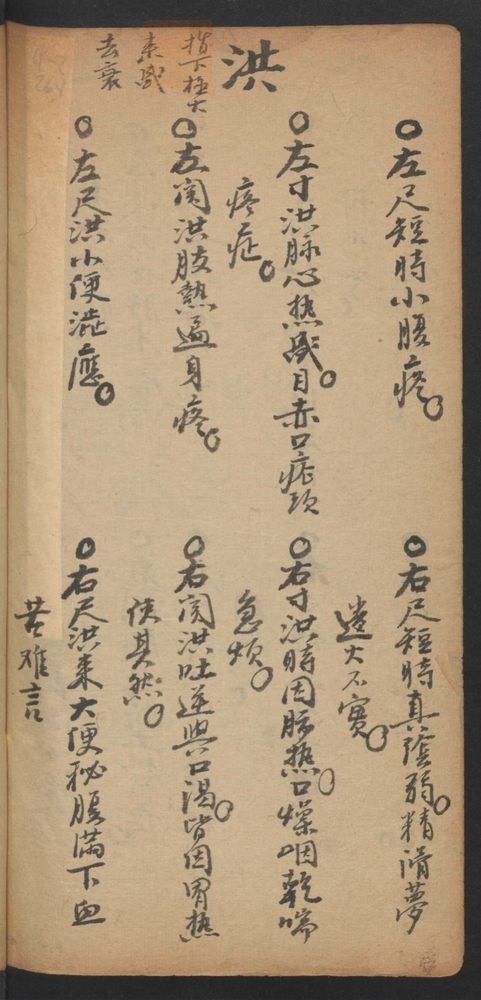 左尺短時小腹疼
右尺短時真陰弱精滑夢
遺火不實
洪
指下極大
来盛
去衰
左寸洪脉心热盛目赤口疮頭
疼症
右寸洪時因肺热口燥咽乾喘
急烦
左関洪肢熱遍身疼
右関洪吐逆與口渴皆因胃热
使其然
左尺洪小便澁應
右尺洪来大便秘腹满下血
苦难言